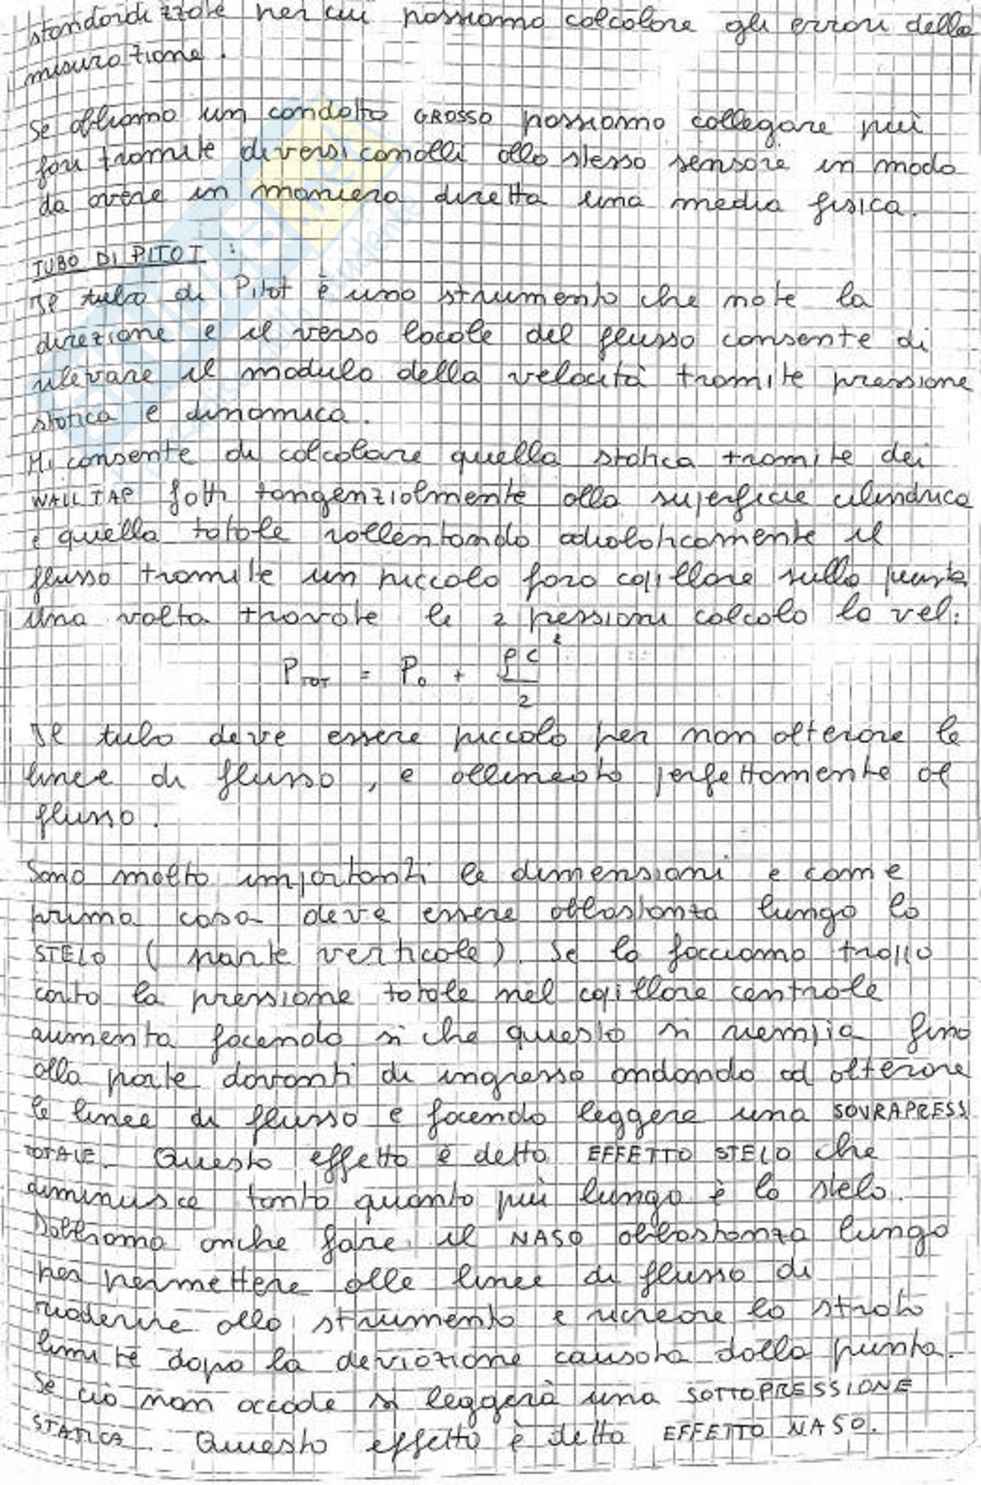 standardizzate per cui possiamo calcolare gli errori della
misurazione.
Se abbiamo un condotto GROSSO possiamo collegare più
fori tramite diversi canalli allo stesso sensore in modo
da avere in maniera diretta una media fisica.
TUBO DI PITOT :
Il tubo di Pitot è uno strumento che note la
direzione e il verso locale del flusso consente di
rilevare il modulo della velocità tramite pressione
statica e dinamica.
Mi consente di calcolare quella statica tramite dei
WALL TAP fatti tangenzialmente alla superficie cilindrica
e quella totale rallentando adiabaticamente il
flusso tramite un piccolo foro capillare sulla punta
Una volta trovate le 2 pressioni calcolo la vel:
PTOT = P0 + ρc²/2
Il tubo deve essere piccolo per non alterare le
linee di flusso, e allineato perfettamente al
flusso.
Sono molto importanti le dimensioni e come
prima cosa deve essere abbastanza lungo lo
STELO (parte verticale). Se lo facciamo troppo
corto la pressione totale nel capillare centrale
aumenta facendo si che questo si riempia fino
alla parte davanti di ingresso andando ad alterare
le linee di flusso e facendo leggere una SOVRAPRESS
TOTALE. Questo effetto è detto EFFETTO STELO che
diminuisce tanto quanto più lungo è lo stelo.
Dobbiamo anche fare il NASO abbastanza lungo
per permettere alle linee di flusso di
riaderire allo strumento e ricreare lo strato
limite dopo la deviazione causata dalla punta.
Se ciò non accade si leggerà una SOTTOPRESSIONE
STATICA. Questo effetto è detto EFFETTO NASO.